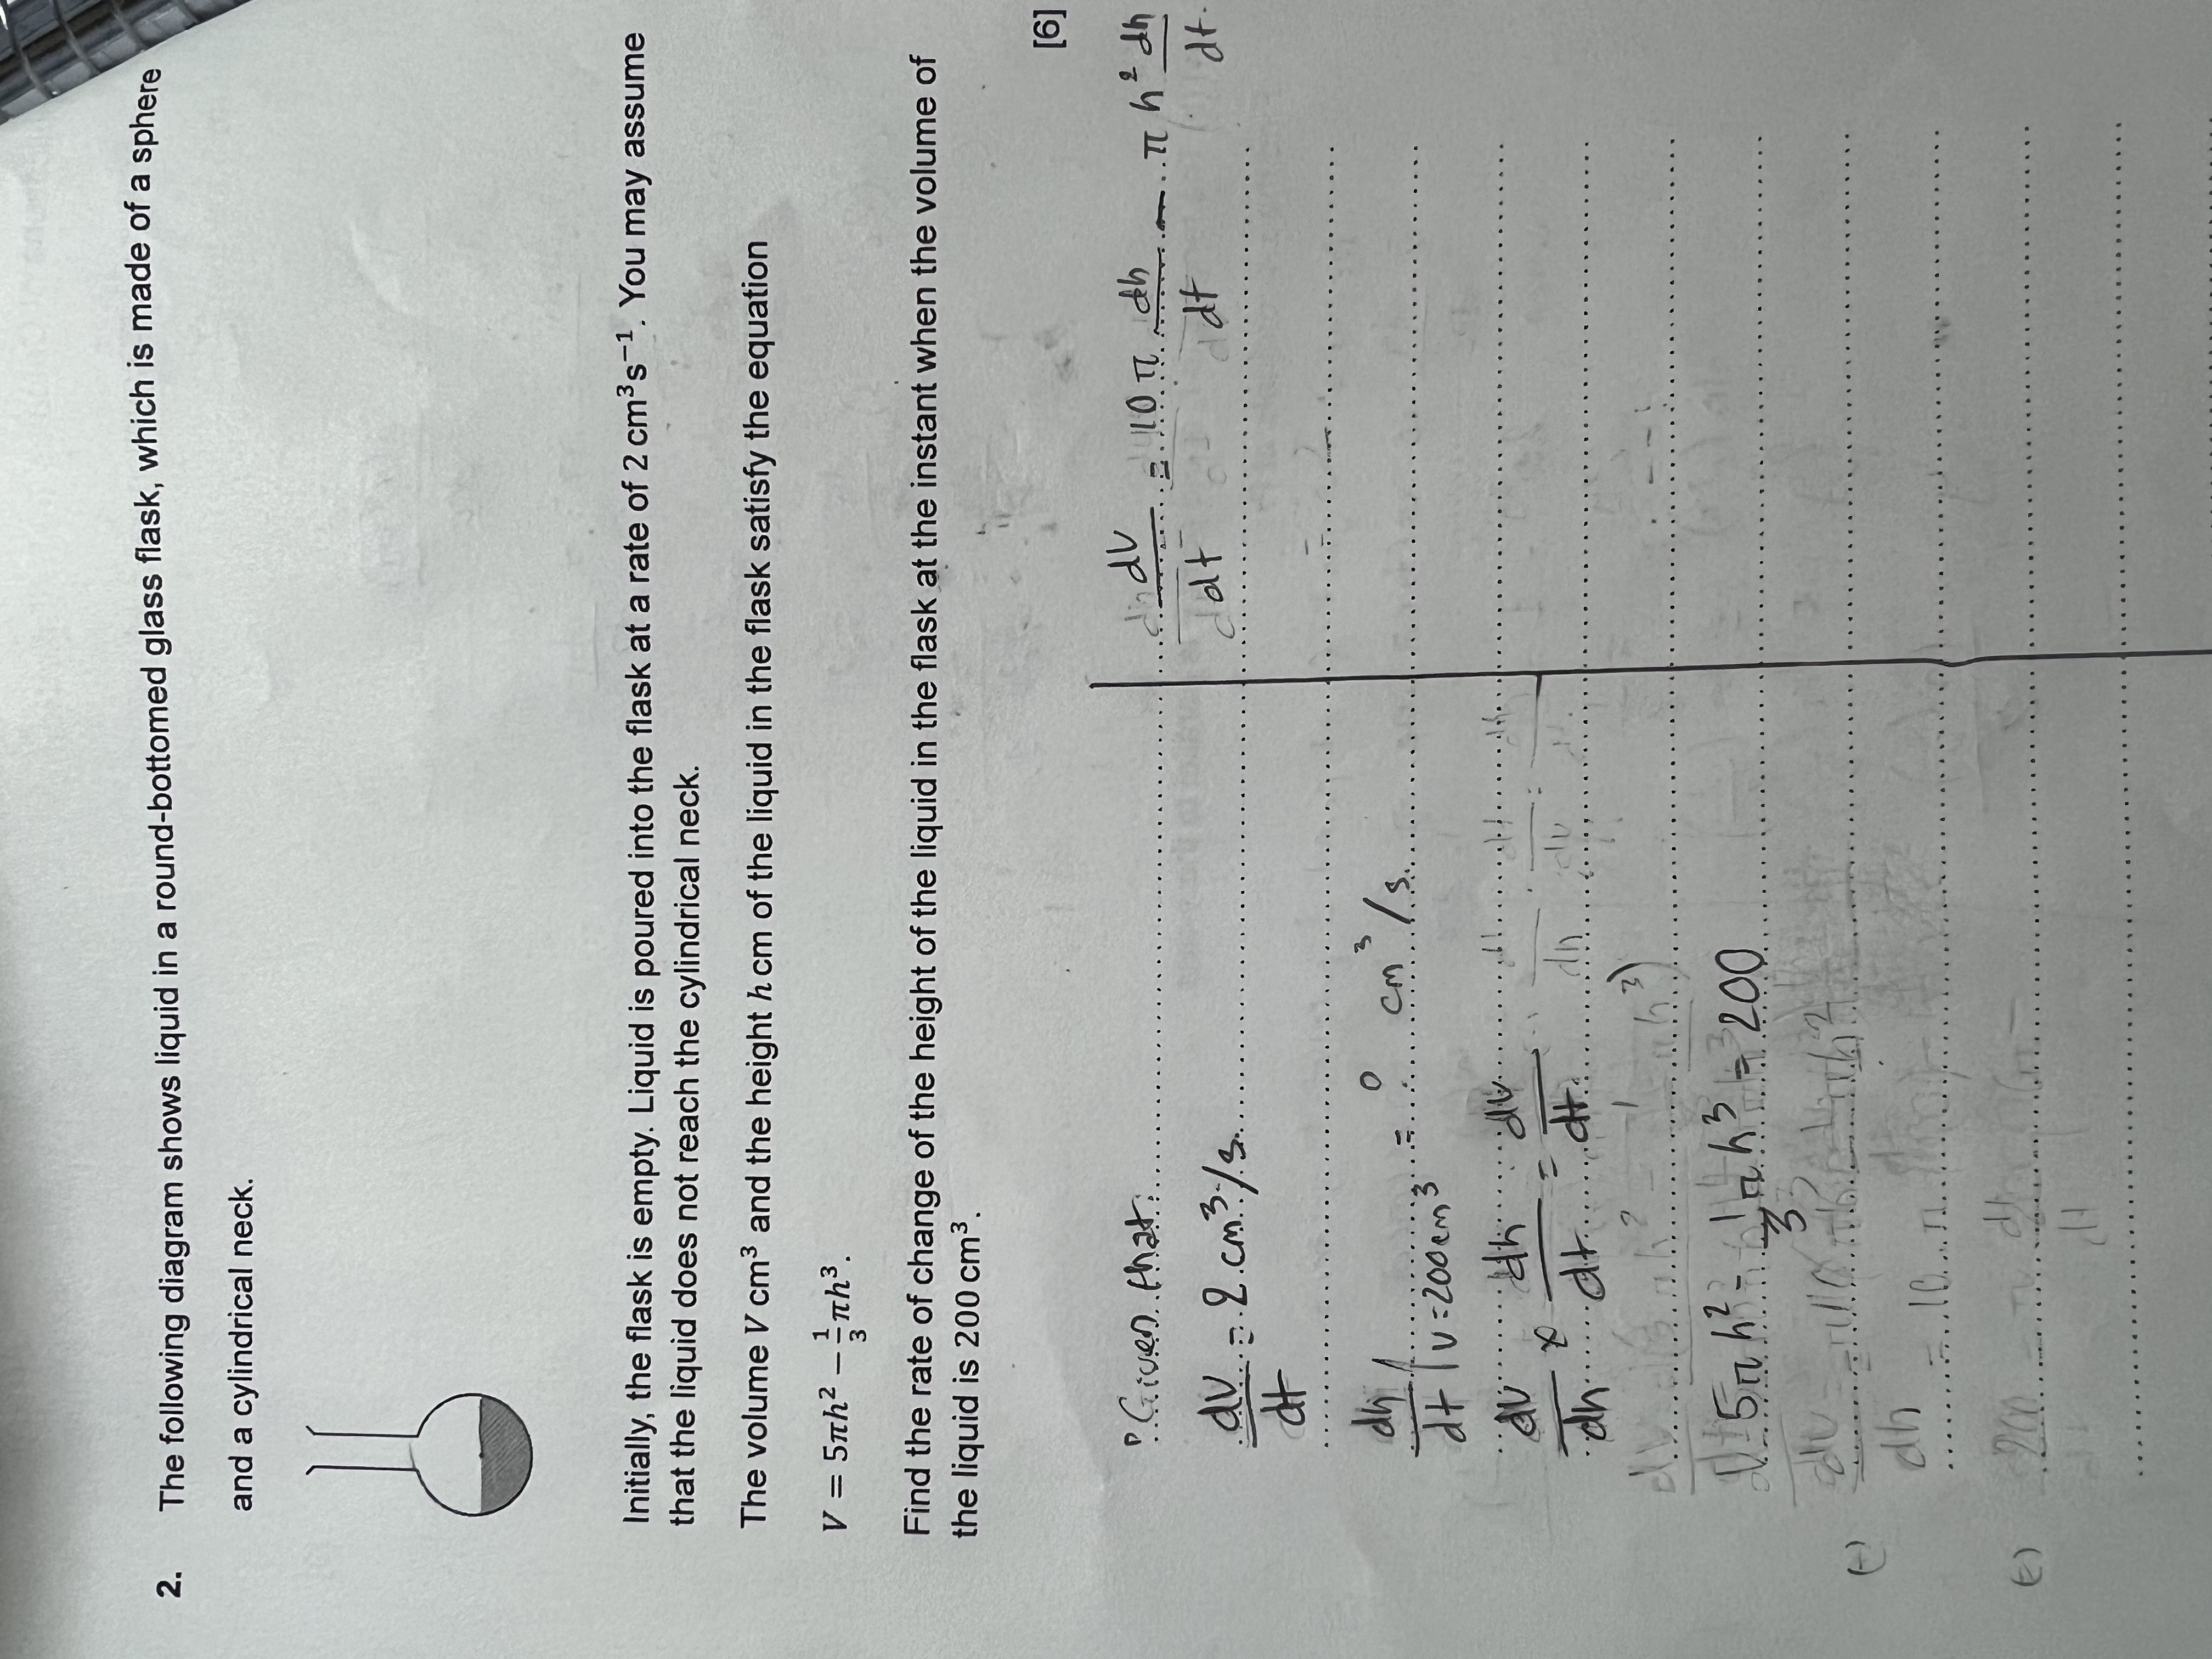 2. The following diagram shows liquid in a round-bottomed glass flask, which is made of a sphere
and a cylindrical neck.
Initially, the flask is empty. Liquid is poured into the flask at a rate of 2 cm³s⁻¹. You may assume
that the liquid does not reach the cylindrical neck.
The volume V cm³ and the height h cm of the liquid in the flask satisfy the equation
V = 5πh² − 1/3 πh³.
Find the rate of change of the height of the liquid in the flask at the instant when the volume of
the liquid is 200 cm³.
[6]
Given that
dV/dt = 2 cm³/s
dh/dt | V=200cm³ = cm³/s
dV/dh × dh/dt = dV/dt
5πh² − 1/3 πh³ = 200
dV/dt = 10π dh/dt − πh² dh/dt